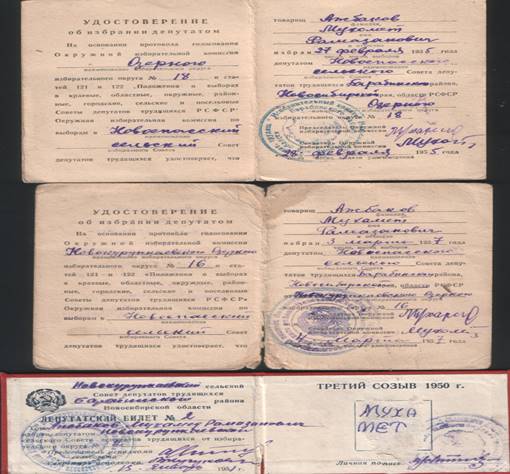 УДОСТОВЕРЕНИЕ
об избрании депутатом
На основании протокола голосования
Окружной избирательной комиссии
Озерного
избирательного округа № 18 и ста-
тей 121 и 122 „Положения о выборах
в краевые, областные, окружные, район-
ные, городские, сельские и поселковые
Советы депутатов трудящихся РСФСР"
Окружная избирательная комиссия по
выборам в Новоспасский
сельский Совет
депутатов трудящихся удостоверяет, что
товарищ Ажбаков
Мухамет
Рамазанович
избран 27 февраля 1955 года
депутатом Новоспасского
сельского Совета депу-
татов трудящихся Барабинского
Новосибирской области РСФСР
Озерного
избирательного округа № 18
Председатель Окружной
избирательной комиссии
Секретарь Окружной
избирательной комиссии
28 февраля 1955 г.
УДОСТОВЕРЕНИЕ
об избрании депутатом
На основании протокола голосования
Окружной избирательной комиссии
избирательного округа № 16 и ста-
тей 121 и 122 „Положения о выборах
в краевые, областные, окружные, район-
ные, городские, сельские и поселковые
Советы депутатов трудящихся РСФСР"
Окружная избирательная комиссия по
выборам в Новоспасский
сельский Совет
депутатов трудящихся удостоверяет, что
товарищ Ажбаков
Мухамет
Рамазанович
избран 3 марта 1957 года
депутатом Новоспасского
сельского Совета депу-
татов трудящихся Барабинского района,
Новосибирской области РСФСР
Озерного
избирательного округа № 16
Секретарь Окружной
избирательной комиссии
4 марта 1957 г.
сельской
Совет депутатов трудящихся
Барабинского района
Новосибирской области
ДЕПУТАТСКИЙ БИЛЕТ № 2
Ажбаков Мухамет Рамазанович
ТРЕТИЙ СОЗЫВ 1950 г.
МУХА
МЕТ
Личная подпись